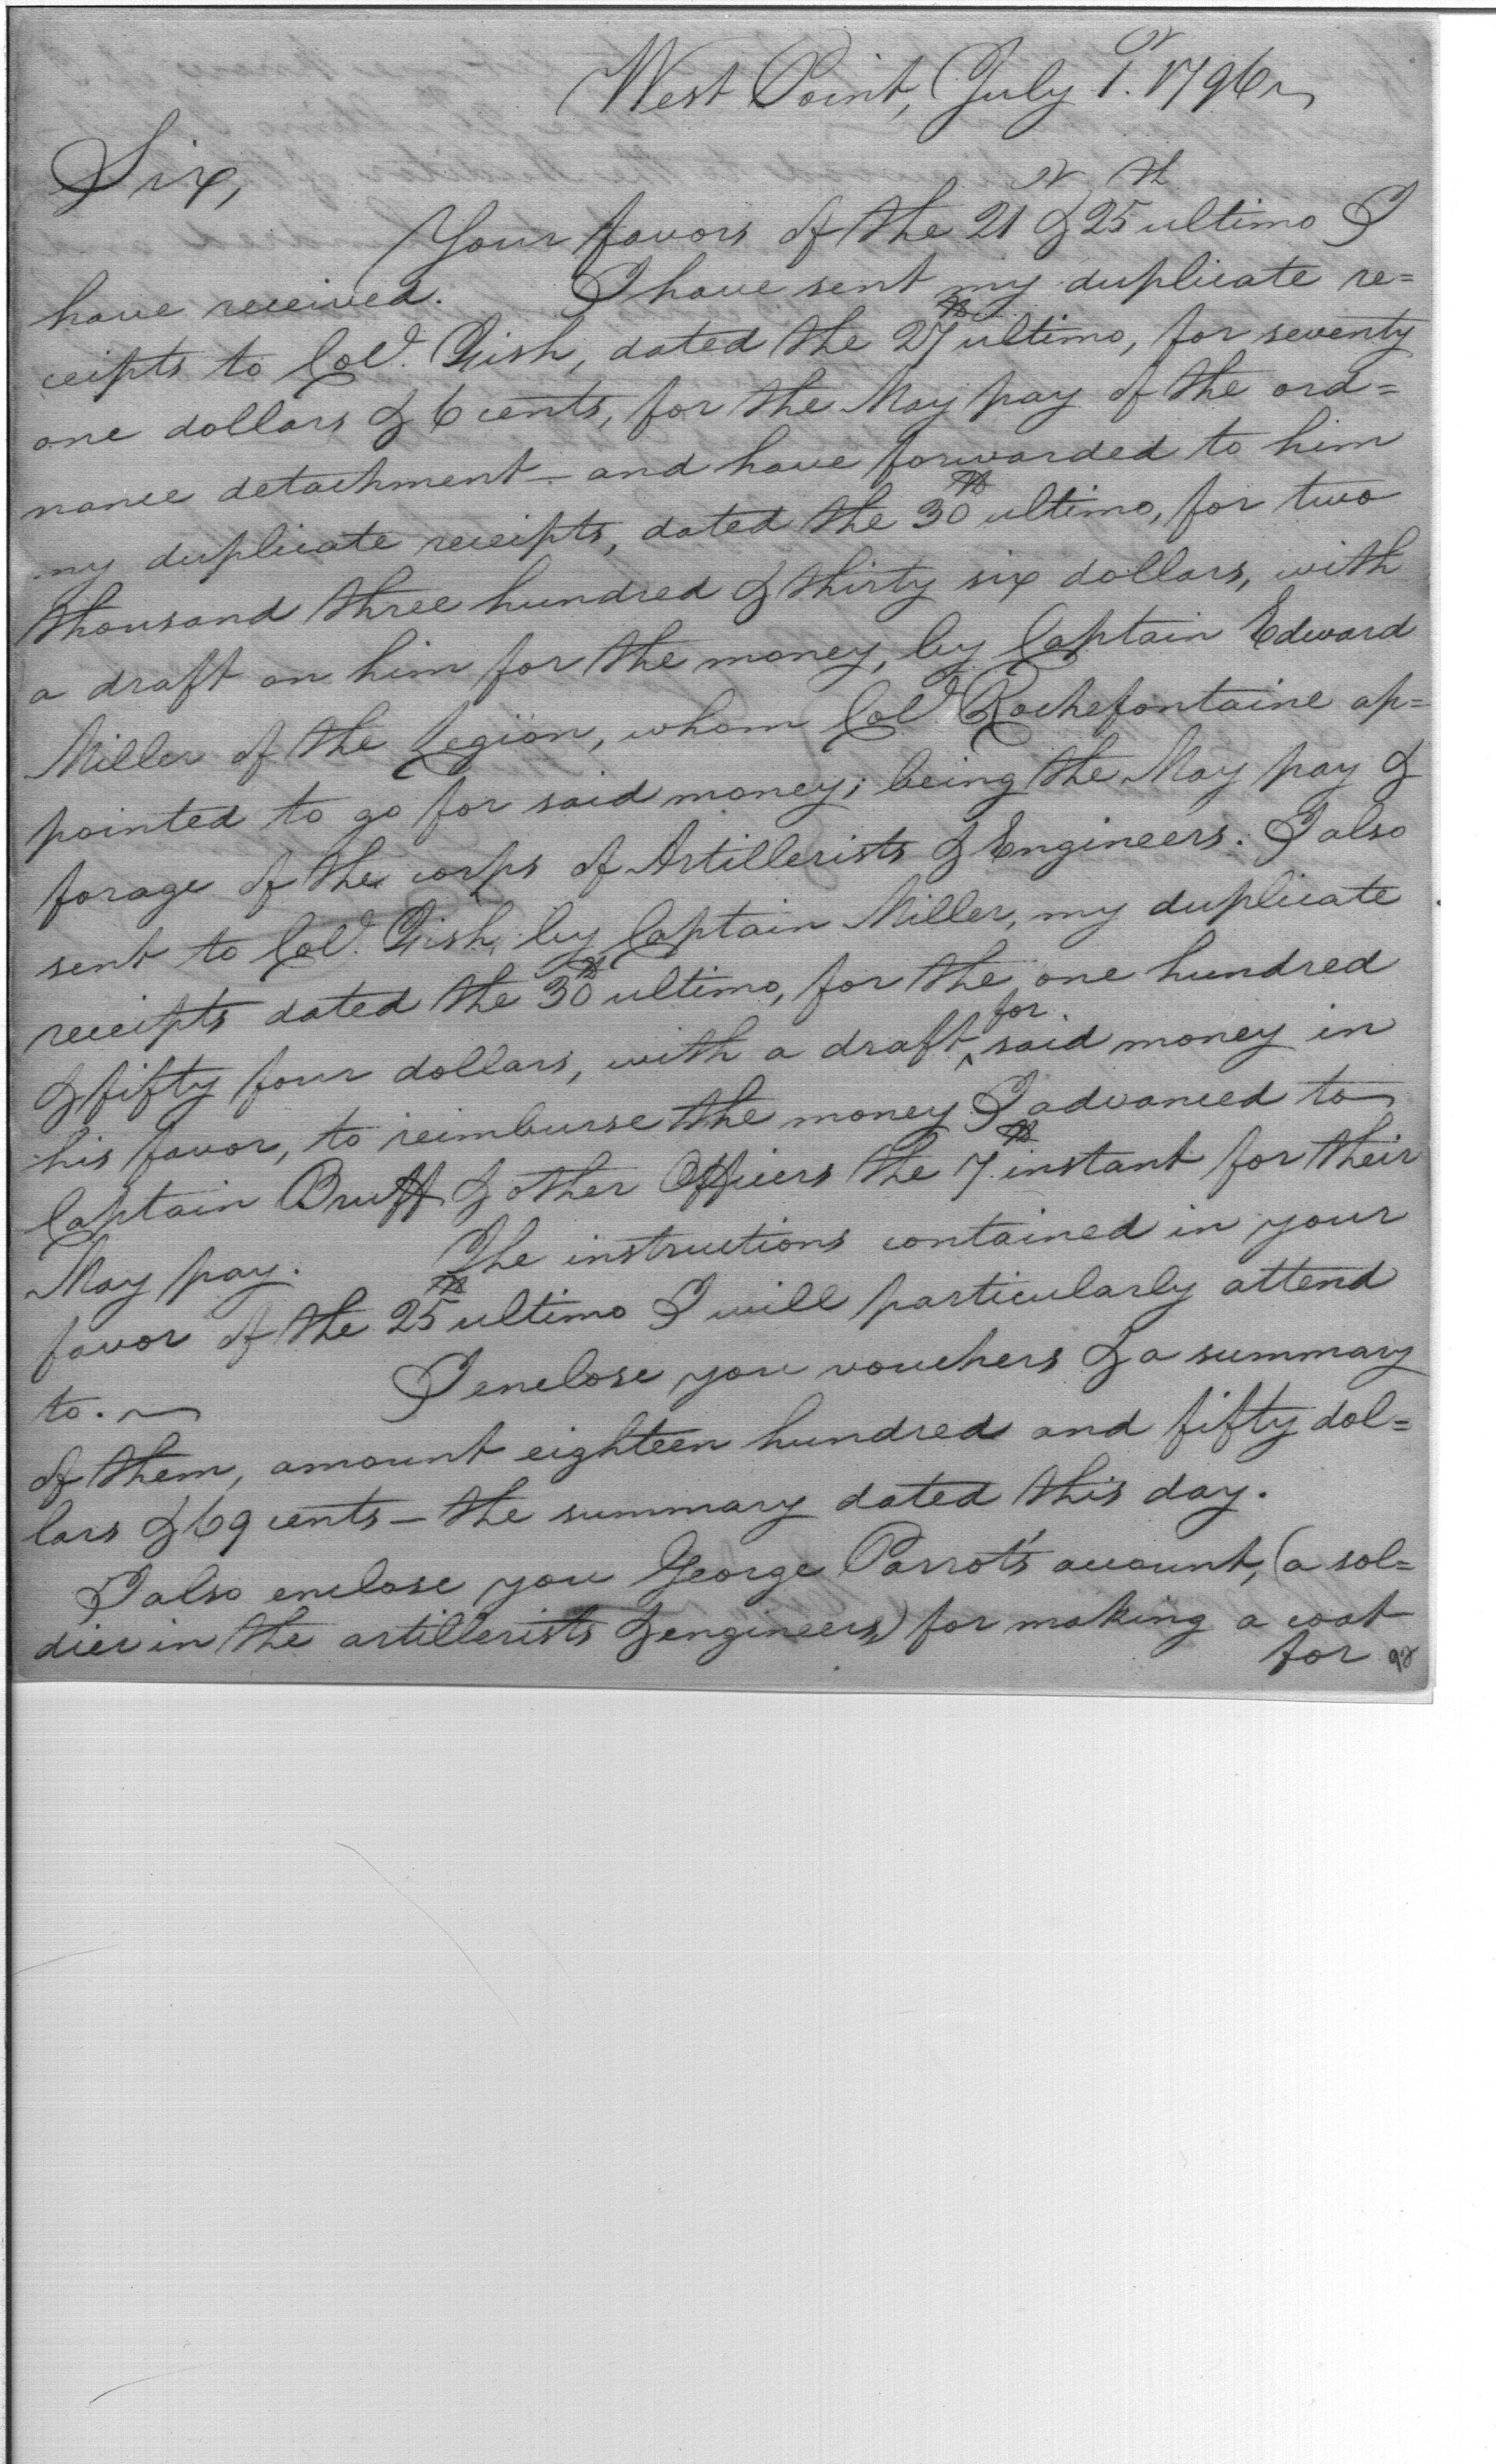 West Point, July 1st. 1796
Sir,
Your favors of the 21st & 25th ultimo I
have received. I have sent my duplicate re=
ceipts to Colo. Gish, dated the 27th ultimo, for seventy
one dollars & 6 cents, for the May pay of the ord=
nance detachment — and have forwarded to him
my duplicate receipts, dated the 30th ultimo, for two
thousand three hundred & thirty six dollars, with
a draft on him for the money, by Captain Edward
Miller of the Legion, whom Colo. Rochefontaine ap=
pointed to go for said money; being the May pay &
forage of the corps of Artillerists & Engineers. I also
sent to Colo. Gish, by Captain Miller, my duplicate
receipts dated the 30th ultimo, for the one hundred
& fifty four dollars, with a draft ^for said money in
his favor, to reimburse the money I advanced to
Captain Bruff & other Officers the 7th instant for their
May pay. The instructions contained in your
favor of the 25th ultimo I will particularly attend
to. I enclose you vouchers & a summary
of them, amount eighteen hundred and fifty dol=
lars & 69 cents — the summary dated this day.
I also enclose you George Parrot's account, (a sol=
dier in the artillerists & engineers) for making a coat
for